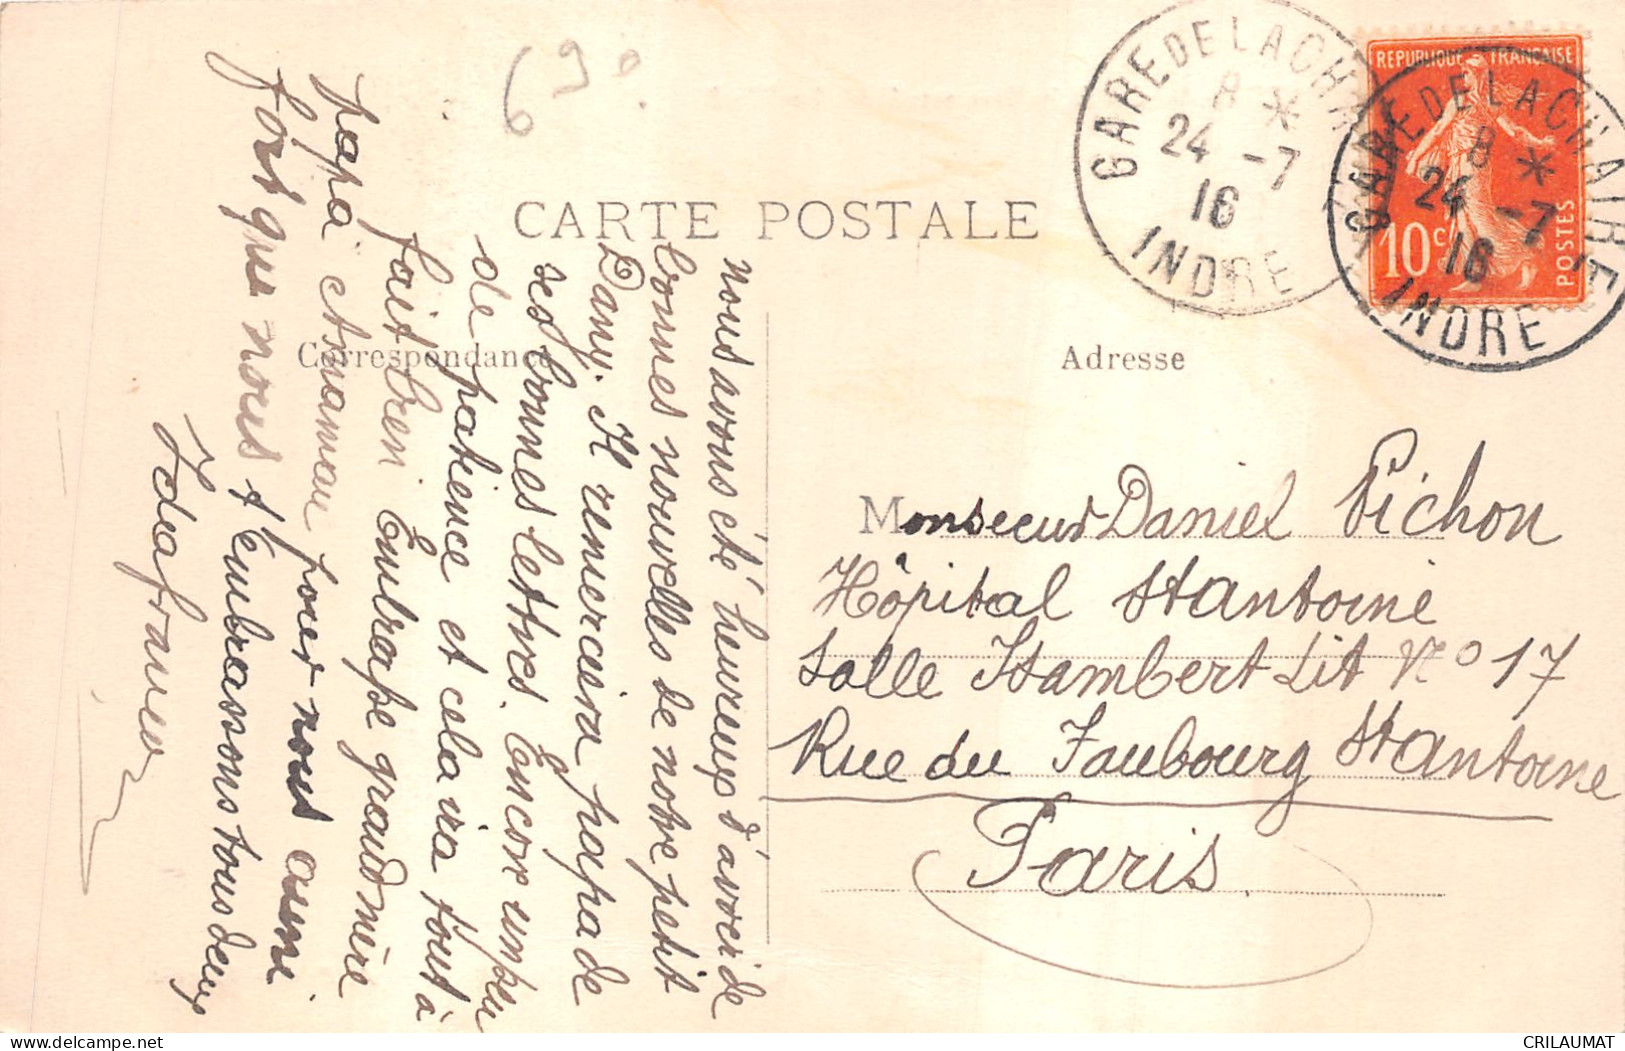 69
CARTE POSTALE
Correspondance
Adresse
REPUBLIQUE FRANÇAISE
10c
POSTES
GARE DE LA CHAIRE
8 *
24 -7
16
INDRE
GARE DE LACHAIRE
8 *
24 -7
16
INDRE
nous avons été heureux d'avoir de
bonnes nouvelles de notre petit
Dany. Il remerciera papa de
ses bonnes lettres. Encore un peu
de patience et cela ira tout à
fait bien Embrasse grand mère
papa et maman pour nous aime
fort que nous t'embrassons tous deux
Monsieur Daniel Pichon
Hôpital St antoine
Salle Isambert Lit N° 17
Rue du Faubourg St antoine
Paris.
CRILAUMAT